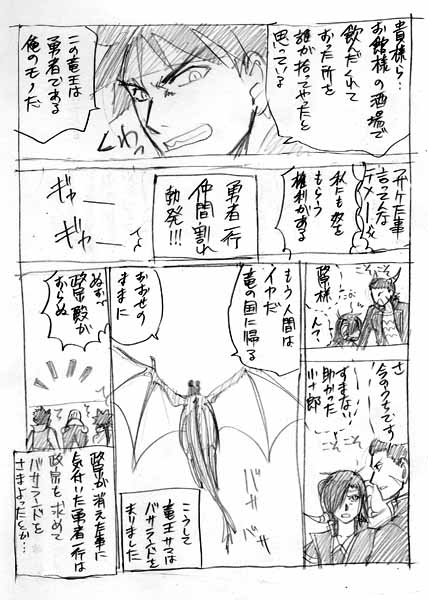 貴様ら…
お館様の酒場で
飲んだくれて
おった所を
誰が拾ってやったと
思っている
この竜王は
勇者である
俺のモノだ
くわっ
フザけた事
言ってんな
テメーら
私にも奴を
もらう
権利がある
勇者一行
仲間割れ
勃発!!!
ギャー
ギャー
政宗様
こそ
こそ
さ
今のうちです
すまない
助かった
小十郎
こそ
こそ
もう人間は
イヤだ
竜の国に帰る
おおせの
ままに
バサ
バサ
こうして
竜王サマは
バサラードを
去りました
ぬおっ
政宗殿が
おらぬ
政宗が消えた事に
気付いた勇者一行は
政宗を求めて
バサラードを
さまよったとか…